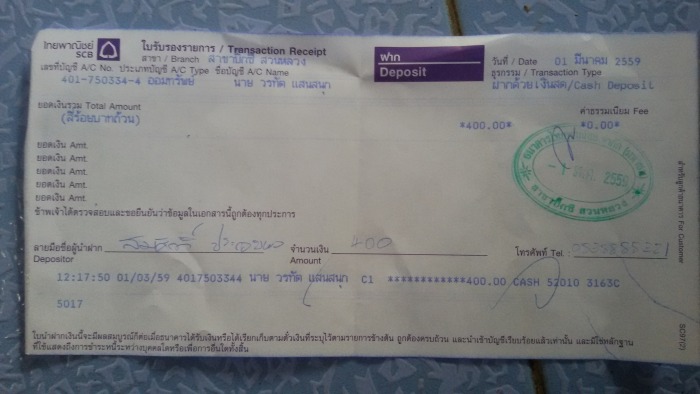 ไทยพาณิชย์
SCB
ใบรับรองรายการ / Transaction Receipt
สาขา / Branch สาขาบิ๊กซี สวนหลวง
เลขที่บัญชี A/C No. ประเภทบัญชี A/C Type ชื่อบัญชี A/C Name
401-750334-4 ออมทรัพย์ นาย วรทัต แสนสนุก
ฝาก
Deposit
วันที่ / Date 01 มีนาคม 2559
ธุรกรรม / Transaction Type
ฝากด้วยเงินสด/Cash Deposit
ยอดเงินรวม Total Amount
ค่าธรรมเนียม Fee
(สี่ร้อยบาทถ้วน) *400.00* *0.00*
ยอดเงิน Amt.
ยอดเงิน Amt.
ยอดเงิน Amt.
ยอดเงิน Amt.
ยอดเงิน Amt.
2559
สาขาบิ๊กซี สวนหลวง
ข้าพเจ้าได้ตรวจสอบและขอยืนยันว่าข้อมูลในเอกสารนี้ถูกต้องทุกประการ
ลายมือชื่อผู้นำฝาก จำนวนเงิน 400 โทรศัพท์ Tel. :
Depositor Amount
12:17:50 01/03/59 4017503344 นาย วรทัต แสนสนุก C1 ************400.00 CASH 52010 3163C
5017
ใบนำฝากเงินนี้จะมีผลสมบูรณ์ก็ต่อเมื่อธนาคารได้รับเงินหรือได้เรียกเก็บตามตั๋วเงินที่ระบุไว้ตามรายการข้างต้น ถูกต้องครบถ้วน และนำเข้าบัญชีเรียบร้อยแล้วเท่านั้น และมิใช่หลักฐาน
ที่ใช้แสดงถึงการชำระหนี้ระหว่างบุคคลใดหรือเพื่อการอื่นใดทั้งสิ้น
สำหรับลูกค้าธนาคาร For Customer